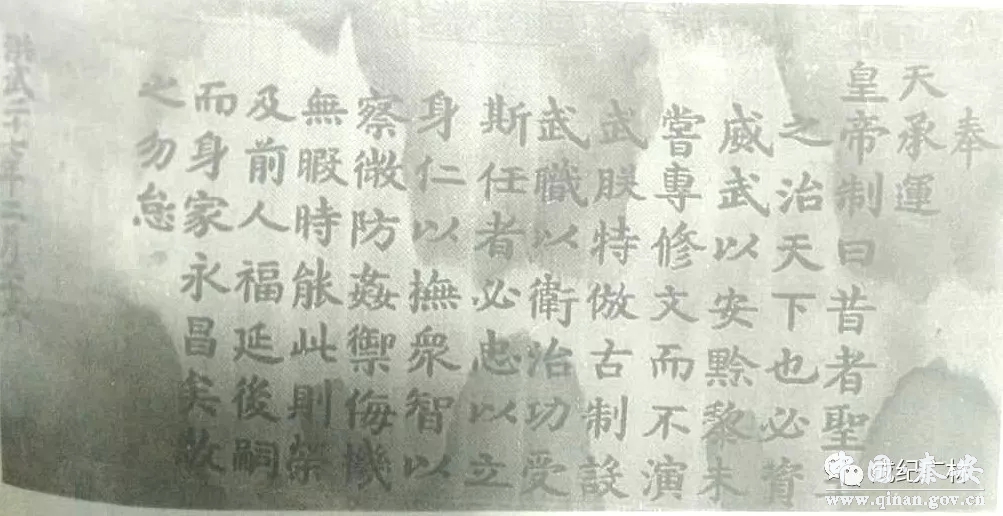 奉
天承運
皇帝制曰昔者聖
之治天下也必資
威武以安黔黎未
嘗專修文而不演
武朕特倣古制設
武職以衛治功受
斯任者必忠以立
身仁以撫衆智以
察微防姦禦侮機
無暇時能此則榮
及前人福延後嗣
而身家永昌矣敬
之勿怠
洪武二十七年二月
中國秦安
www.qinan.gov.cn